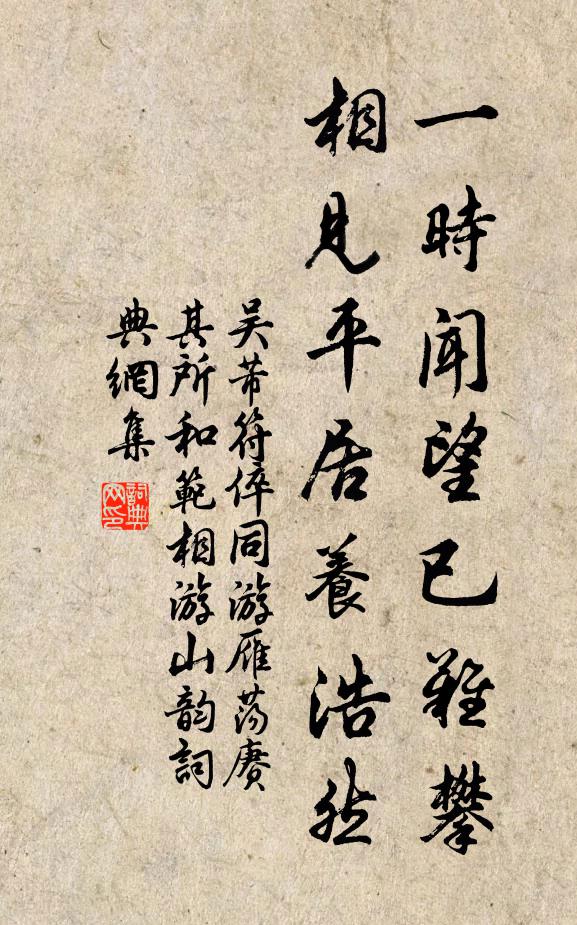 一時聞望已難攀
相見平居養浩然
吴芾符倅同游雁荡赓
其所和範相游山韵詞
典網集
詞典
网印